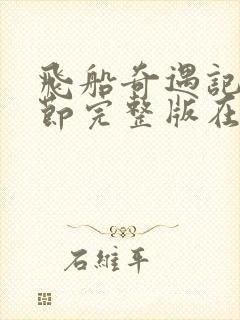 飛船奇遇記
節完整版在
石維平